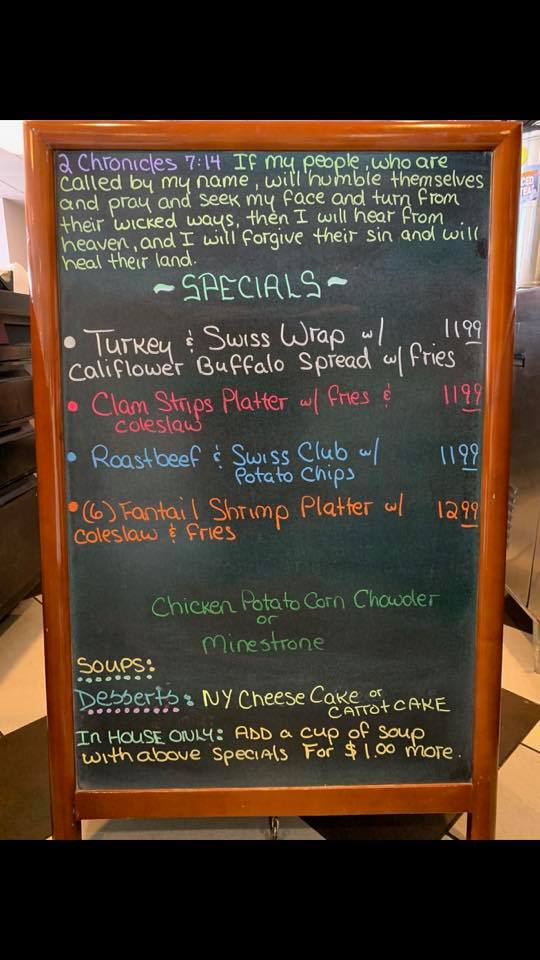 2 Chronicles 7:14 If my people, who are
called by my name, will humble themselves
and pray and seek my face and turn from
their wicked ways, then I will hear from
heaven, and I will forgive their sin and will
heal their land.
~SPECIALS~
• Turkey & Swiss Wrap w/ 1199
Califlower Buffalo Spread w/ fries
• Clam Strips Platter w/ fries & 1199
coleslaw
• Roastbeef & Swiss Club w/ 1199
Potato Chips
• (6) Fantail Shrimp Platter w/ 1299
coleslaw & fries
Chicken Potato Corn Chowder
or
Minestrone
Soups:
Desserts: NY Cheese Cake or
CArrot CAKE
In House Only: ADD a cup of soup
with above specials For $1.00 more.